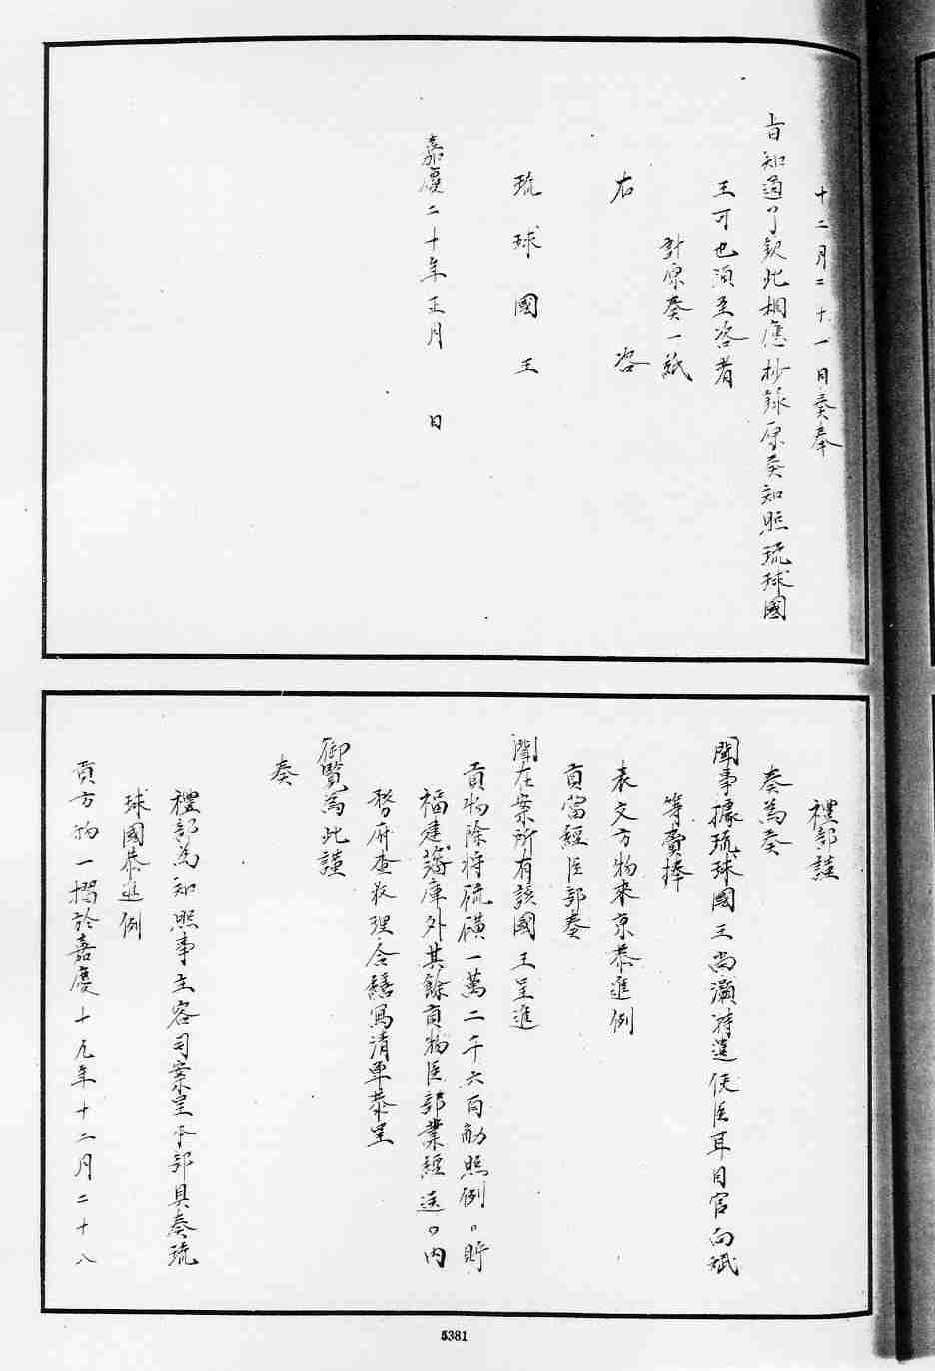 十二月二十一日奏奉
旨知道了欽此相應抄錄原奏知照琉球國
王可也須至咨者
計原奏一紙
右咨
琉球國王
嘉慶二十年正月　日
禮部謹
奏為奏
聞事據琉球國王尚灝特遣使臣耳目官向斌
等賫捧
表文方物來京恭進例
貢當經臣部奏
聞在案所有該國王呈進
貢物除將硫磺一萬二千六百觔照例貯
福建藩庫外其餘貢物臣部業經送內
務府查收理合繕寫清單恭呈
御覽為此謹
奏
禮部為知照事主客司案呈本部具奏琉
球國恭進例
貢方物一摺於嘉慶十九年十二月二十八
5381